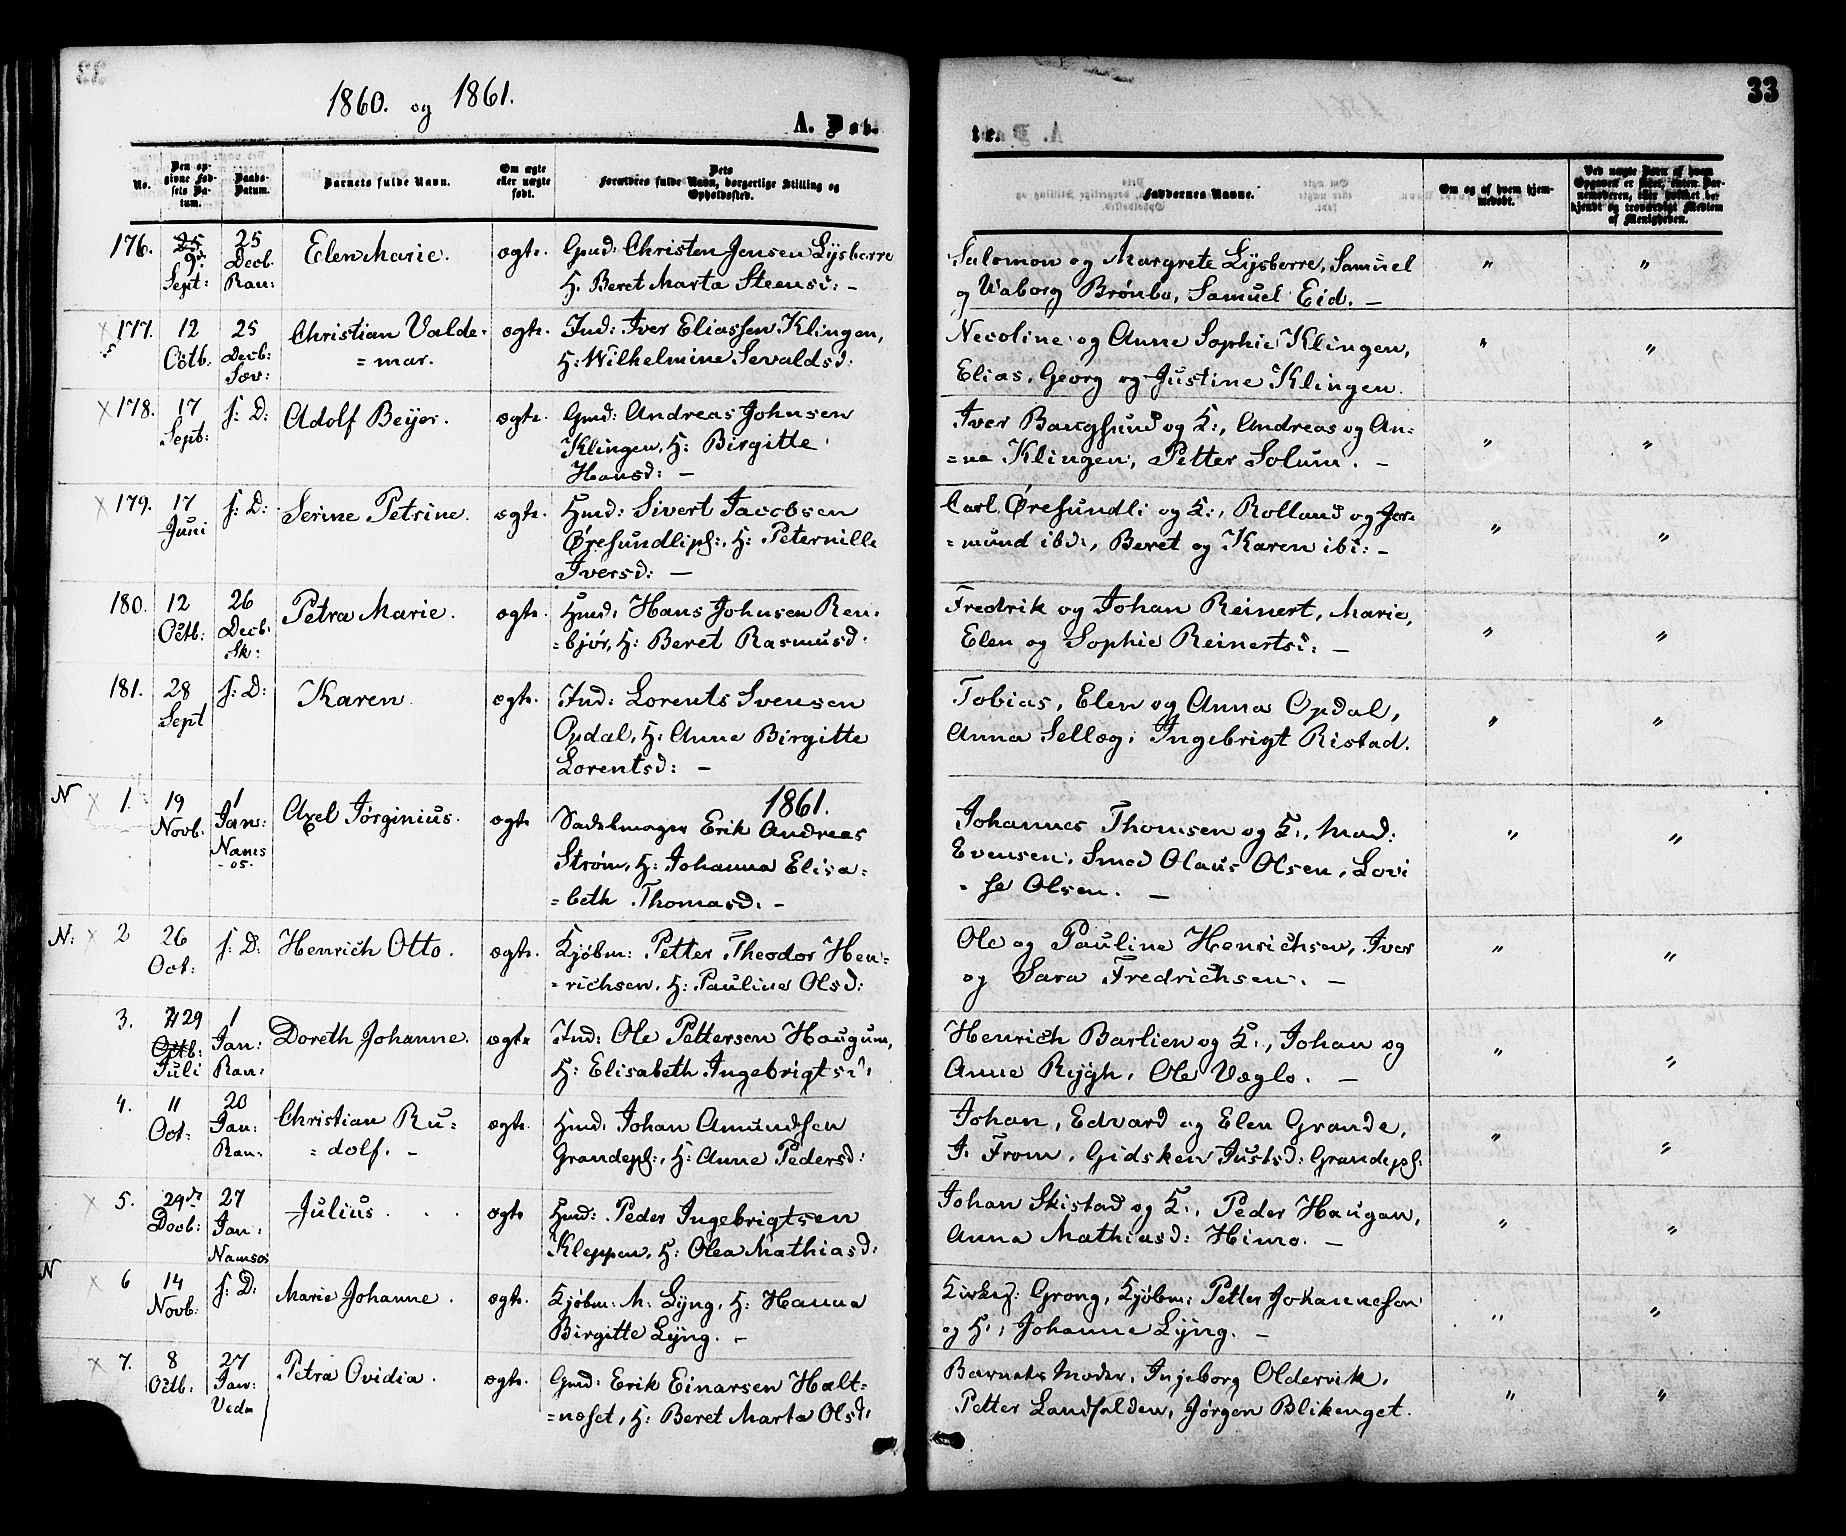 1860. og 1861.
33
A. Døb-
te.
No.
Den op-
givne Fød-
sels Da-
tum.
Daabs-
Datum.
Barnets fulde Navn.
Om ægte
eller uægte
født.
Dets
Forældres fulde Navn, borgerlige Stilling og
Opholdssted.
Faddernes Navne.
Om og af hvem hjem-
medøbt.
Ved uægte Børn af hvem
Opgaven er skeet, enten Bar-
nemoderen, eller hvilket be-
kjendt og troværdigt Medlem
af Menigheden.
176. 25 9de Sept: 25 Decb. Ran: Elen Marie. ægte. Gmd: Christen Jensen Lysberre
H. Beret Marta Steensd: –
Salomon og Margrete Lysberre, Samuel
og Valborg Brønbo, Samuel Eid. – " "
177. 12 Octb. 25 Decb: Sæv: Christian Valde-
= mar. ægte. Ind: Iver Eliassen Klingen,
H: Wilhelmine Sevaldsd:
Necoline og Anne Sophie Klingen,
Elias, Georg og Justine Klingen. " "
178. 17 Sept: s: D: Adolf Beyer. ægte. Gmd: Andreas Johnsen
Klingen, H: Birgitte
Hansd: –
Iver Bangsund og K:, Andreas og An-
=ne Klingen, Petter Solum. – " "
179. 17 Juni s: D: Serine Petrine. ægte. Hmd: Sivert Jacobsen
Øresundlipl:, H: Peternille
Iversd: –
Carl Øresundli og K:, Rolland og Jer-
=mund ibd:, Beret og Karen ibd: – " "
180. 12 Octb: 26 Decb: Sk: Petra Marie. ægte. Hmd: Hans Johnsen Ren-
=bjør, H: Beret Rasmusd:
Fredrik og Johan Reinert, Marie,
Elen og Sophie Reinertsd: – " "
181. 28 Sept s: D: Karen. ægte. Ind: Lorents Svensen
Opdal, H: Anne Birgitte
Lorentsd: –
Tobias, Elen og Anna Opdal,
Anna Sellæg, Ingebrigt Ristad. " "
1861.
N 1. 19 Novb. 1 Jan: Nams-os. Axel Jørginius. ægte Sadelmager Erik Andreas
Strøm, H: Johanna Elisa-
=beth Thomasd: –
Johannes Thomsen og K:, Mad:
Evensen, Smed Olaus Olsen, Lovi
-se Olsen. – " "
N: 2 26 Oct: s: D: Henrich Otto. ægte. Kjøbm: Petter Theodor Hen-
=richsen, H: Pauline Olsd:
Ole og Pauline Henrichsen, Iver
og Sara Fredrichsen. – " "
3. 29 Octb: Juli 1 Jan: Ran: Doreth Johanne. ægte Ind: Ole Pettersen Haugum,
H: Elisabeth Ingebrigtsd:
Henrich Barlien og K:, Johan og
Anne Rygh, Ole Væglo. – " "
4. 11 Oct: 20 Jan: Ran: Christian Ru-
= dolf. – ægte. Hmd: Johan Amundsen
Grandepl:, H: Anne Pedersd:
Johan, Edvard og Elen Grande,
J. From, Gidsken Justsd: Grandepl: " "
5. 29de Decb: 27 Jan: Namsos Julius. ægte Hmd: Peder Ingebrigtsen
Kleppen, H: Olea Mathiasd:
Johan Skistad og K:, Peder Haugan,
Anna Mathiasd: Himo. – " "
N 6 14 Novb: s: D: Marie Johanne. ægte. Kjøbm: M: Lyng, H: Hanna
Birgitte Lyng. –
Kirkes: Grong, Kjøbm: Petter Johannessen
og H:, Johanne Lyng. – " "
7. 8 Octb: 27 Jan: Vedm Petra Ovidia. ægte. Gmd: Erik Einarsen Halt-
=neset, H: Beret Marta Olsd:
Barnets Moder, Injeborg Oldervik,
Petter Landfalden, Jørgen Blikenget. " "